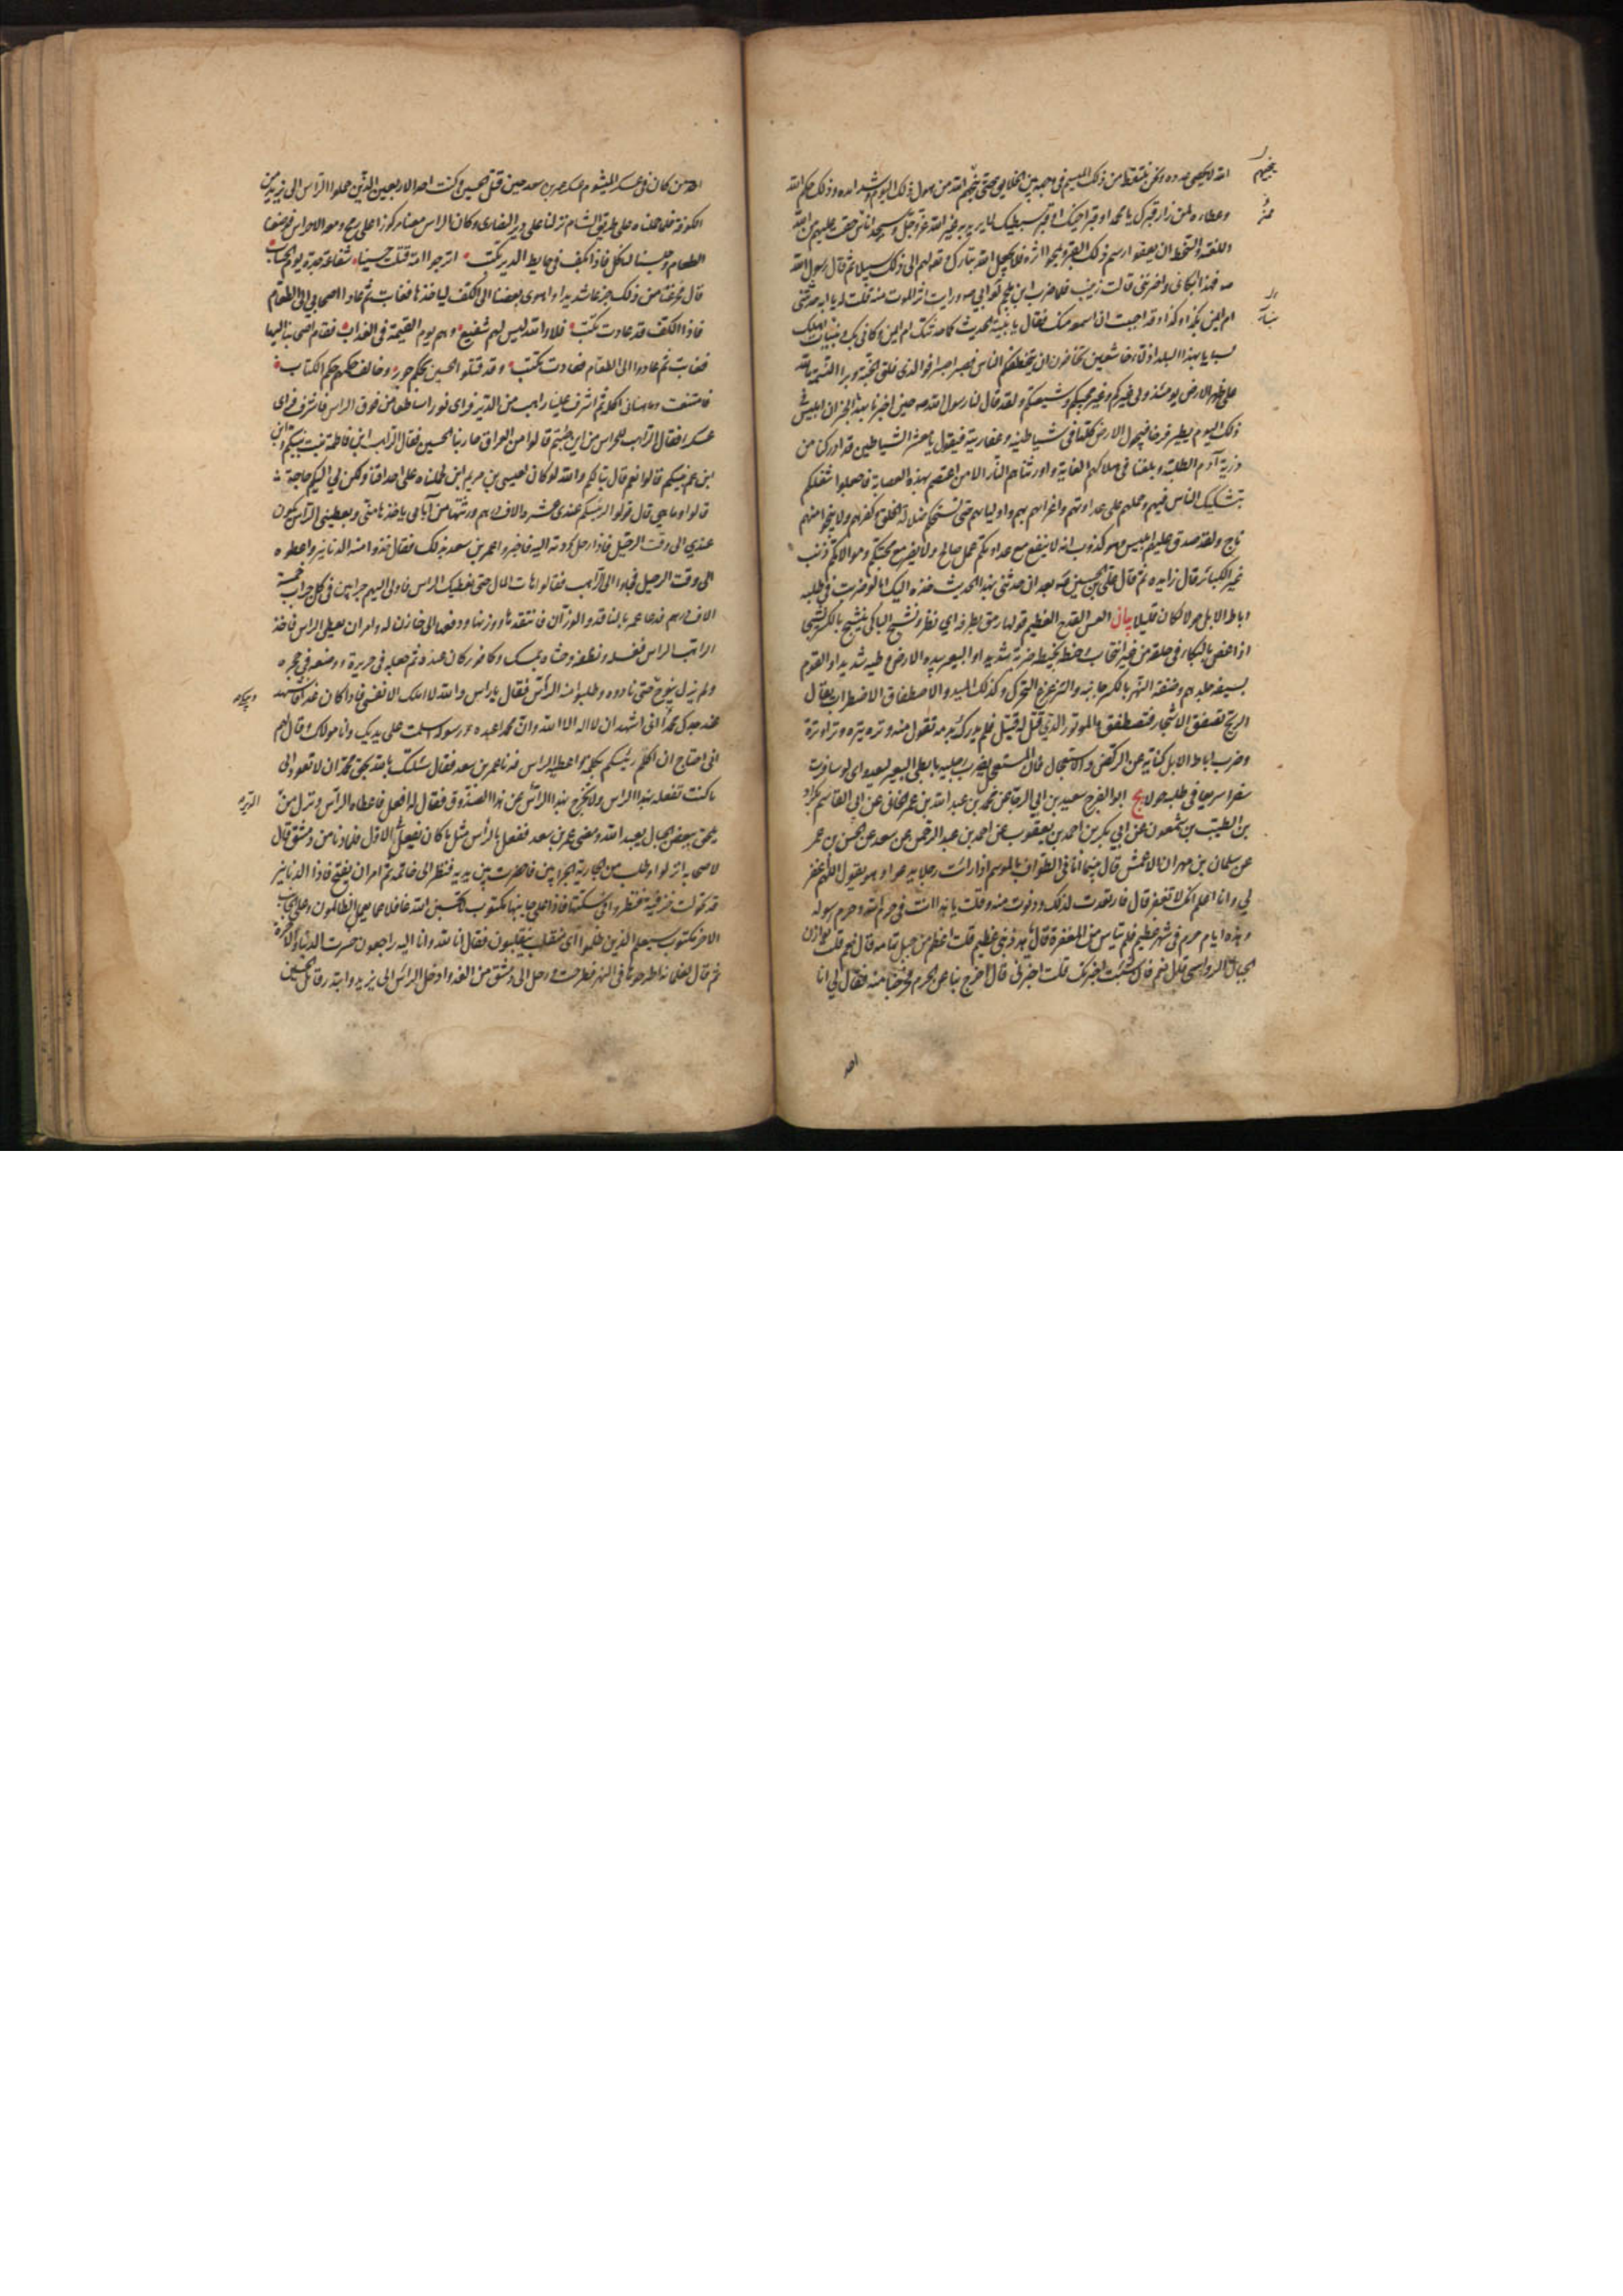 الله لا يحصى عدده ونحن نلتقط من ذلك الميسم في وجهه من بين الخلايق حتى ينجيهم الله من هول ذلك اليوم وشدايده وذلك حكم الله
وعطاؤه لمن زار قبرك يا محمد او قبر اخيك او قبر سبطيك لا يريد به غير الله عز وجل وسيجد اناس حقت عليهم من الله
اللعنة والسخط ان يعفوا رسم ذلك القبر ويمحوا اثره فلا يجعل الله تبارك وتعالى لهم الى ذلك سبيلا ثم قال رسول الله
ص فهذا ابكاني واحزنني قالت زينب فلما ضرب ابن ملجم لع ابي ورايت اثر الموت منه قلت له يا ابه حدثتني
ام ايمن بكذا وكذا وقد احببت ان اسمعه منك فقال يا بنية الحديث كما حدثتك ام ايمن وكاني بك وبنات اهلك
سبايا بهذا البلد اذلاء خاشعين تخافون ان يتخطفكم الناس فصبرا صبرا فوالذي فلق الحبة وبرا النسمة ما لله
على ظهر الارض يومئذ ولي غيركم وغير محبيكم وشيعتكم ولقد قال لنا رسول الله ص حين اخبرنا بهذا الخبر ان ابليس في
ذلك اليوم يطير فرحا فيجول الارض كلها في شياطينه وعفاريته فيقول يا معشر الشياطين قد ادركنا من
ذرية آدم الطلبة وبلغنا في هلاكهم الغاية واورثناهم النار الا من اعتصم بهذه العصابة فاجعلوا شغلكم
بتشكيك الناس فيهم وحملهم على عداوتهم واغرائهم بهم واوليائهم حتى تستحكم ضلالة الخلق وكفرهم ولا ينجوا منهم
ناج ولقد صدق عليهم ابليس وهو كذوب انه لا ينفع مع عداوتكم عمل صالح ولا يضر مع محبتكم وموالاتكم ذنب
غير الكبائر قال زايده ثم قال علي بن الحسين ع بعد ان حدثني بهذا الحديث خذه اليك اما لو ضربت في طلبه
اباط الابل حولا لكان قليلا بيان العس القدح العظيم قولها رمق بطرفه اي نظر ونشج الباكي ينشج بالكسر نشجا
اذا غص بالبكاء في حلقه من غير انتحاب وخبط يخبط ضربه شديدا والبعير بيده الارض وطيه شديدا والقوم
بسيفه جلدهم وضفة النهر بالكسر جانبه والتزعزع التحرك وكذلك الميد والاصطفاق الاضطراب يقال
الريح تصفق الاشجار فتصطفق والموتور الذي قتل له قتيل فلم يدرك بدمه تقول منه وتره يتره وترا وترة
وضرب اباط الابل كناية عن الركض والاستعجال فان المستعجل يضرب رجليه بابطي البعير ليعدو اي لو سافرت
سفرا سريعا في طلبه حولا يج ابو الفرج سعيد بن ابي الرجا عن محمد بن عبد الله بن عمر الخاني عن ابي القاسم بكراد
بن الطيب بن شمعون عن ابي بكر بن احمد بن يعقوب عن احمد بن عبد الرحمن عن سعد عن الحسن بن عمر
عن سلمان بن مهران الاعمش قال بينما انا في الطواف بالموسم اذا رايت رجلا يدعو وهو يقول اللهم اغفر
لي وانا اعلم انك لا تغفر قال فارتعدت لذلك ودنوت منه وقلت يا هذا انت في حرم الله وحرم رسوله
وهذه ايام حرم في شهر عظيم فلم تياس من المغفرة قال يا هذا ذنبي عظيم قلت اعظم من جبل تهامه قال نعم قلت يوازن
الجبال الرواسي قال نعم فان شئت اخبرتك قلت اخبرني قال اخرج بنا عن الحرم فخرجنا منه فقال لي انا
احد
احد من كان في عسكر الميشوم عسكر عمر بن سعد حين قتل الحسين وكنت احد الاربعين الذين حملوا الراس الى يزيد من
الكوفة فلما حملناه على طريق الشام نزلنا على دير النصارى وكان الراس معنا مركوزا على رمح ومعه الاحراس فوضعنا
الطعام وجلسنا لناكل فاذا بكف في حايط الدير يكتب اترجوا امة قتلت حسينا شفاعة جده يوم الحساب
قال فجزعنا من ذلك جزعا شديدا واهوى بعضنا الى الكف لياخذها فغابت ثم عاد اصحابي الى الطعام
فاذا الكف قد عادت تكتب فلا والله ليس لهم شفيع وهم يوم القيمة في العذاب فقام اصحابنا اليها
فغابت ثم عادوا الى الطعام فعادت تكتب وقد قتلوا الحسين بحكم جور وخالف حكمهم حكم الكتاب
فامتنعت وما هنأني اكله ثم اشرف علينا راهب من الدير فراى نورا ساطعا من فوق الراس فاشرف فراى
عسكرا فقال الراهب للحراس من اين جئتم قالوا من العراق حاربنا الحسين فقال الراهب ابن فاطمة بنت نبيكم وابن
ابن عم نبيكم قالوا نعم قال تبا لكم والله لو كان لعيسى بن مريم ابن لحملناه على احداقنا ولكن لي اليكم حاجة
قالوا وما هي قال قولوا لرئيسكم عندي عشره الاف درهم ورثتها من آبائي ياخذها مني ويعطيني الراس يكون
عندي الى وقت الرحيل فاذا رحل رددته اليه فاخبروا عمر بن سعد بذلك فقال خذوا منه الدنانير واعطوه
الى وقت الرحيل فجاؤا الى الراهب فقالوا هات المال حتى نعطيك الراس فادلى اليهم جرابين في كل جراب خمسة
الاف درهم فدعا عمر بالناقد والوزان فانتقدها ووزنها ودفعها الى خازن له وامر ان يعطى الراس فاخذ
الراهب الراس فغسله ونظفه وحشاه بمسك وكافور كان عنده ثم جعله في حريرة ووضعه في حجره
ولم يزل ينوح حتى نادوه وطلبوا منه الراس فقال يا راس والله لا املك الا نفسي فاذا كان غدا فاشهد
عند جدك محمد اني اشهد ان لا اله الا الله وان محمدا عبده ورسوله اسلمت على يديك وانا مولاك وقال لهم
اني احتاج ان اكلم رئيسكم بكلمة واعطيه الراس فدنا عمر بن سعد فقال سئلتك بالله وبحق محمد ان لا تعود الى
ما كنت تفعله بهذا الراس ولا تخرج بهذا الراس من هذا الصندوق فقال له افعل فاعطاه الراس ونزل من
يلحق ببعض الجبال يعبد الله ومضى عمر بن سعد ففعل بالراس مثل ما كان يفعل في الاول فلما دنا من دمشق قال
لاصحابه انزلوا وطلب من الجارية الجرابين فاحضرت بين يديه فنظر الى خاتمه ثم امر ان يفتح فاذا الدنانير
قد تحولت خزفية فنظروا في سكتها فاذا على جانبها مكتوب لا تحسبن الله غافلا عما يعمل الظالمون وعلى الجانب
الاخر مكتوب سيعلم الذين ظلموا اي منقلب ينقلبون فقال انا لله وانا اليه راجعون خسرت الدنيا والآخرة
ثم قال لغلمانه اطرحوها في النهر فطرحت ورحل الى دمشق من الغد وادخل الراس الى يزيد وابتدر قاتل الحسين